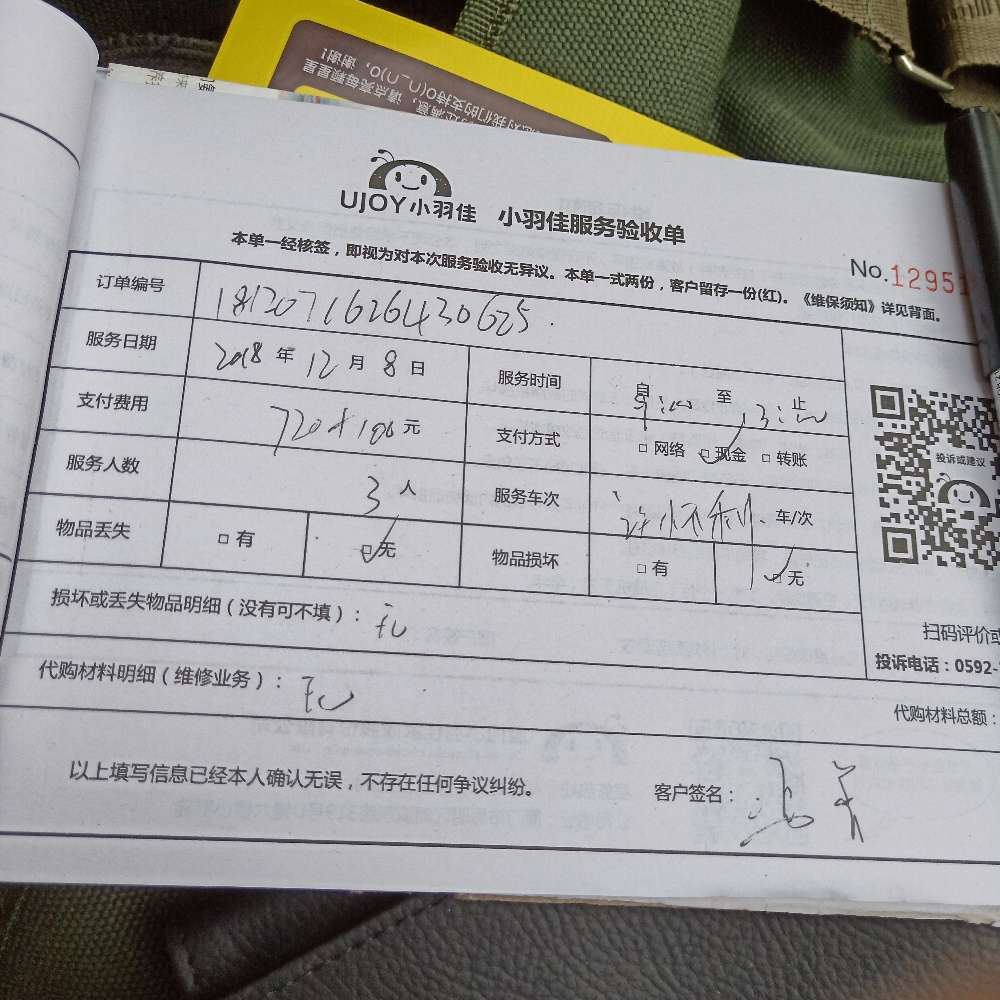 谢谢!
O(∩_∩)O,请点亮每颗星星
对我们的支持
满意,
UJOY小羽佳 小羽佳服务验收单
本单一经核签,即视为对本次服务验收无异议。本单一式两份,客户留存一份(红)。《维保须知》详见背面。
No.12951
订单编号 18120716261430625
服务日期 2018年12月8日 服务时间 自9:00至13:00止
支付费用 720+100元 支付方式 □网络 □现金 □转账
服务人数 3人 服务车次 车/次
物品丢失 □有 □无 物品损坏 □有 □无
投诉或建议
扫码评价或
投诉电话:0592-
损坏或丢失物品明细(没有可不填): 无
代购材料明细(维修业务): 无
代购材料总额:
以上填写信息已经本人确认无误,不存在任何争议纠纷。 客户签名: